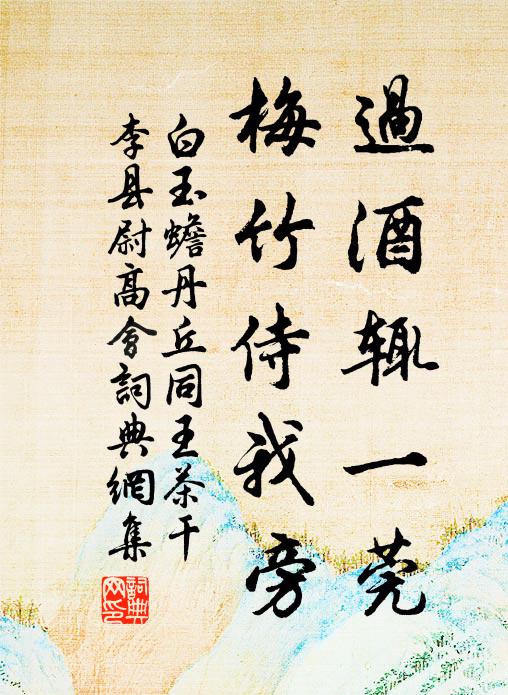 過酒辄一莞
梅竹侍我旁
白玉蟾丹丘同王茶干
李县尉高會詞典網集
詞典网印